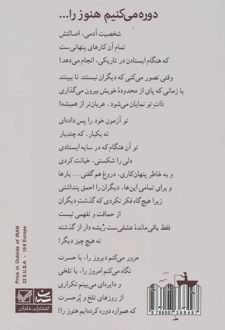 دوره می‌کنیم هنوز را...
شخصیت آدمی، اصالتش
تمام آن کارهای پنهانی‌ست
که هنگام ایستادن در تاریکی، انجام می‌دهد!
وقتی تصور می‌کنی که دیگران نیستند تا ببینند
یا زمانی که پای از محدودهٔ خویش بیرون می‌گذاری
ذات تو نمایان می‌شود، عریان‌تر از همیشه!
تو آزمون خود را پس داده‌ای
نه یکبار، که چندبار
تو آن هنگام که در سایه ایستادی
دلی را شکستی، خیانت کردی
و به خاطر پنهان‌کاری، دروغ هم گفتی... بارها
و برای تمامی این‌ها، دیگران را احمق پنداشتی
زیرا هیچ‌گاه فکر نکردی که گذشتِ دیگران
از حماقت و نفهمی نیست
فقط باقی‌ماندهٔ عشقی‌ست ریشه‌دار از گذشته
نه هیچ چیز دیگر!
مرور می‌کنم دیروز را، با حسرت
نگاه می‌کنم امروز را، با تلخی
و دایره‌ای می‌بینم تکراری
از روزهای تلخ و پُرحسرت
که همواره دوره کرده‌ایم هنوز را!
Price in Outside of IRAN
22 $ U.S.A - 19 € Europe
انتشارات شادان